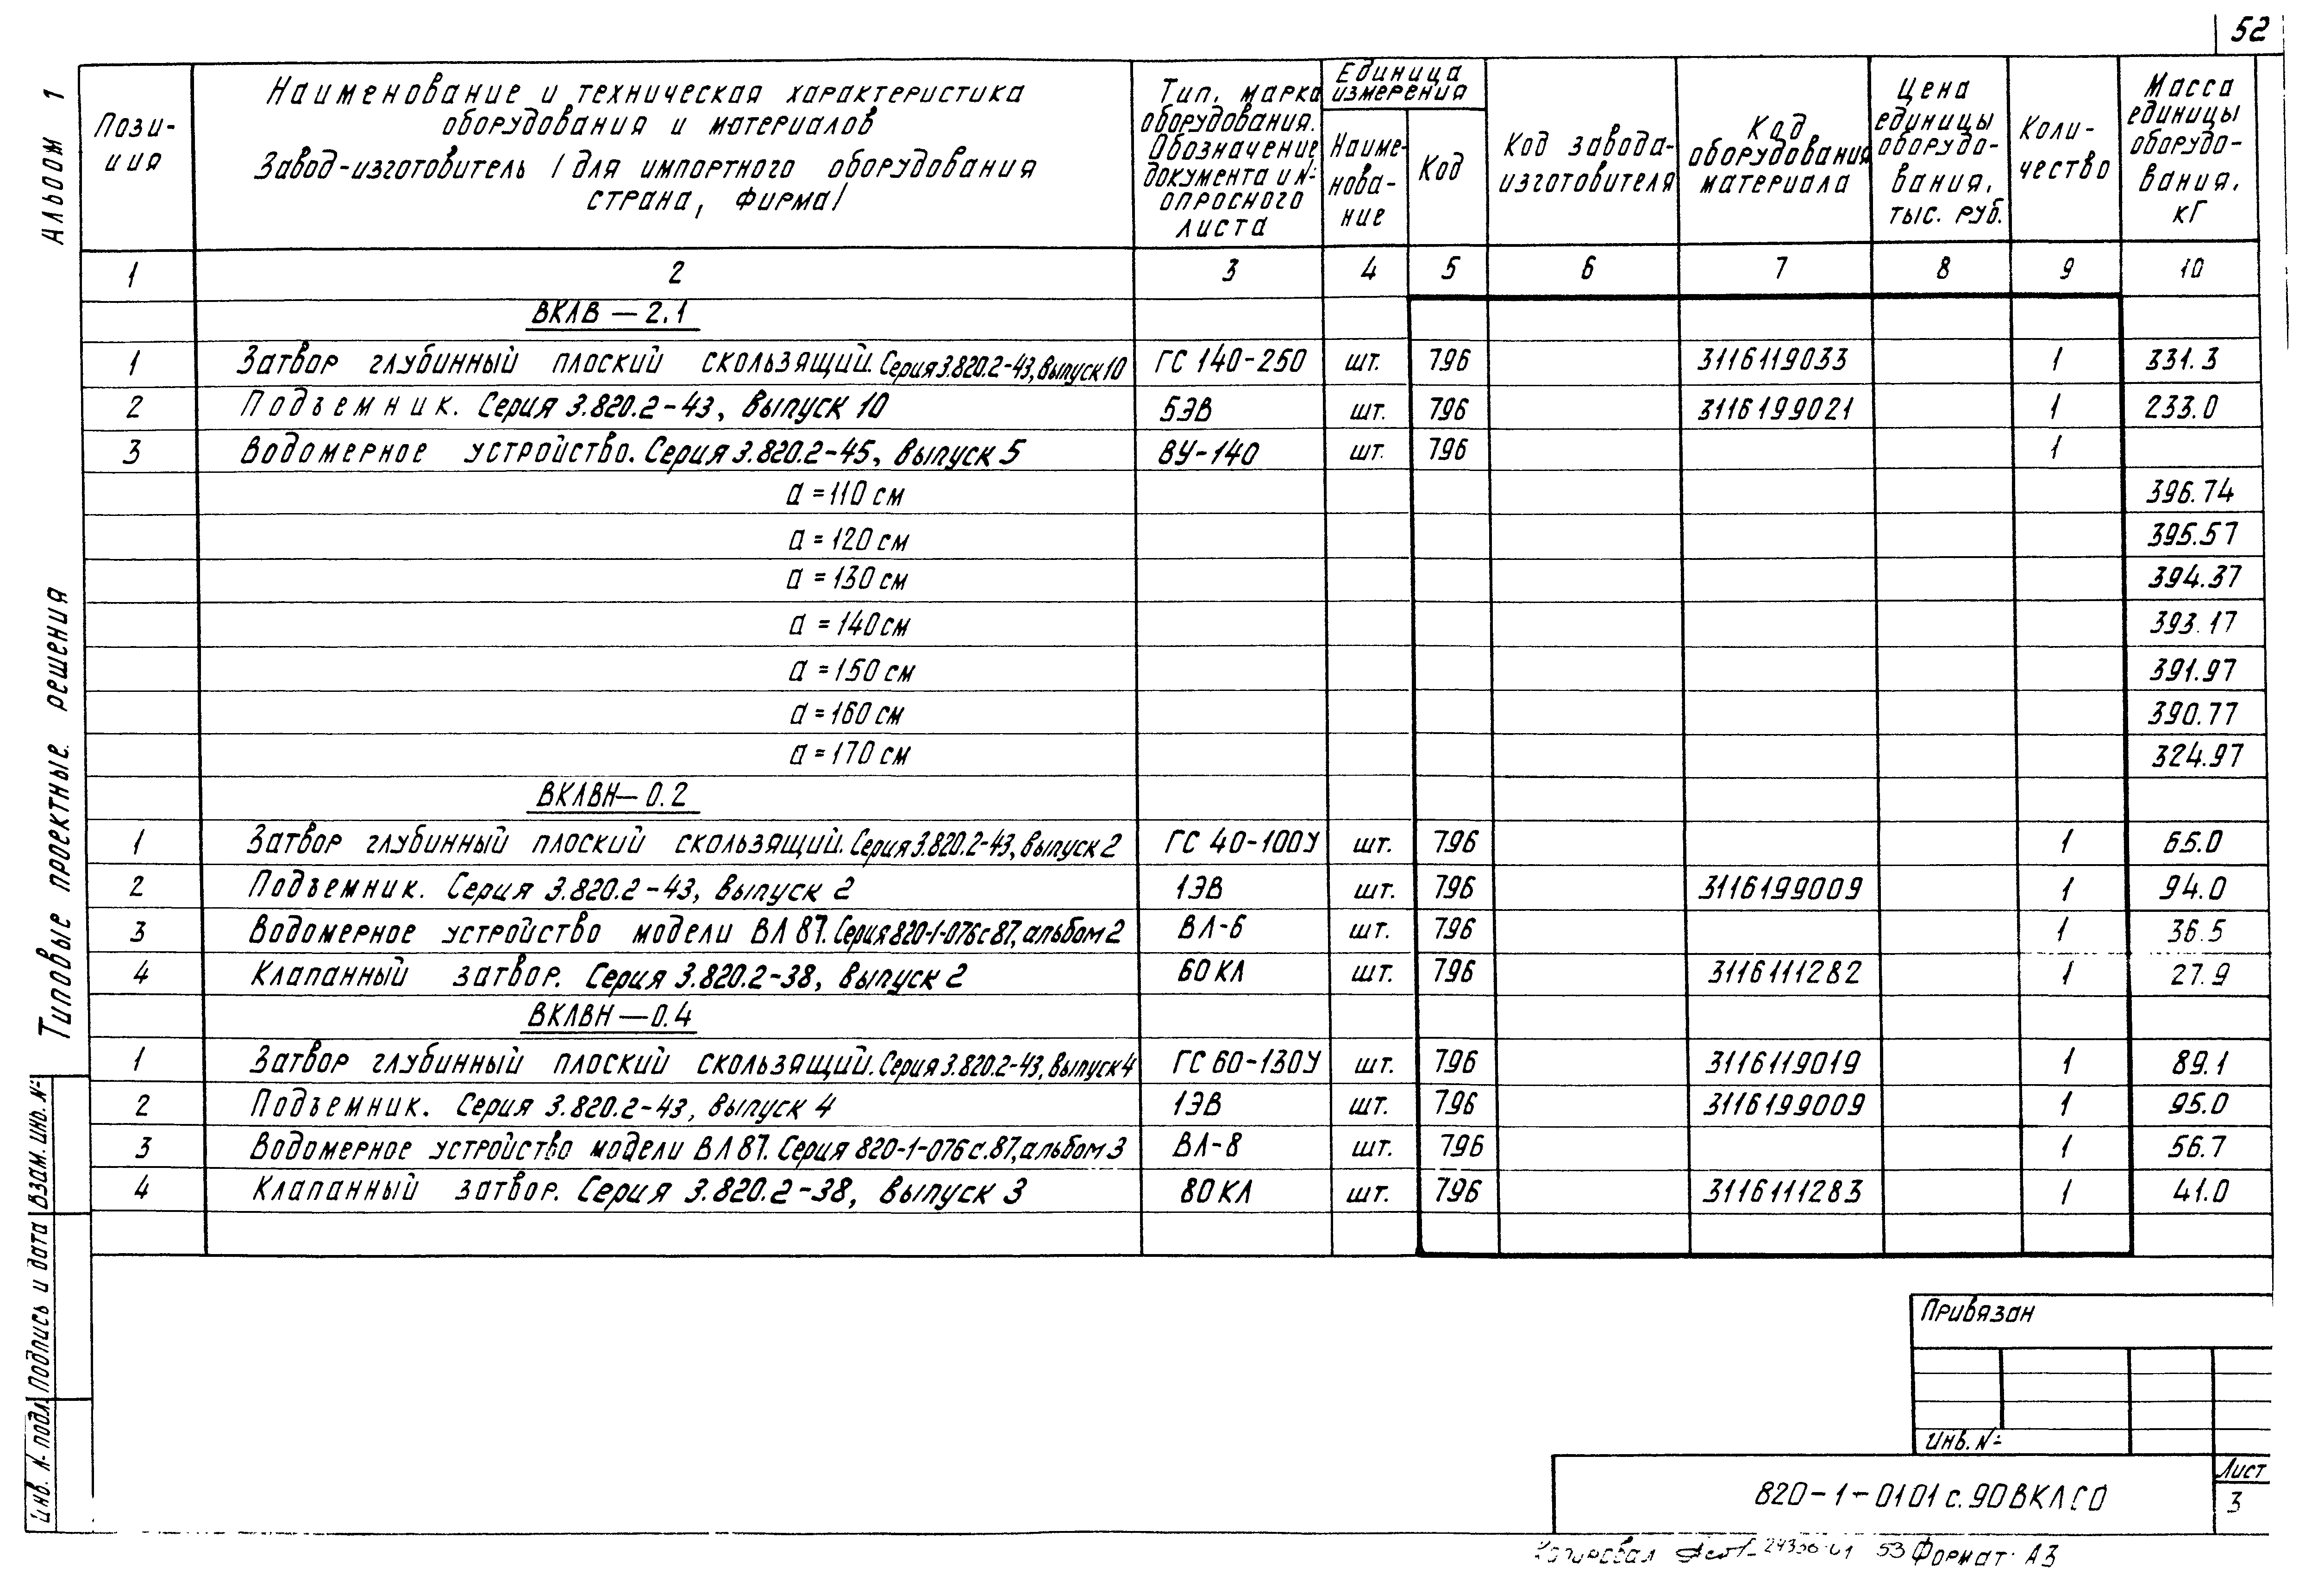 52
Альбом 1
Типовые проектные решения
Пози-
ция
Наименование и техническая характеристика
оборудования и материалов
Завод-изготовитель /для импортного оборудования
страна, фирма/
Тип, марка
оборудования.
Обозначение
документа и №
опросного
листа
Единица
измерения
Наиме-
нова-
ние
Код
Код завода-
изготовителя
Код
оборудования
материала
Цена
единицы
оборудо-
вания,
тыс. руб.
Коли-
чество
Масса
единицы
оборудо-
вания,
кг
1 2 3 4 5 6 7 8 9 10
ВКЛВ — 2.1
1 Затвор глубинный плоский скользящий. Серия 3.820.2-43, выпуск 10 ГС 140-250 шт. 796 3116119033 1 331.3
2 Подъемник. Серия 3.820.2-43, выпуск 10 5ЭВ шт. 796 3116199021 1 233.0
3 Водомерное устройство. Серия 3.820.2-45, выпуск 5 ВУ-140 шт. 796 1
а = 110 см 396.74
а = 120 см 395.57
а = 130 см 394.37
а = 140 см 393.17
а = 150 см 391.97
а = 160 см 390.77
а = 170 см 324.97
ВКЛВН — 0.2
1 Затвор глубинный плоский скользящий. Серия 3.820.2-43, выпуск 2 ГС 40-100У шт. 796 1 65.0
2 Подъемник. Серия 3.820.2-43, выпуск 2 1ЭВ шт. 796 3116199009 1 94.0
3 Водомерное устройство модели ВЛ 87. Серия 820-1-076с87, альбом 2 ВЛ-6 шт. 796 1 36.5
4 Клапанный затвор. Серия 3.820.2-38, выпуск 2 60КЛ шт. 796 3116111282 1 27.9
ВКЛВН — 0.4
1 Затвор глубинный плоский скользящий. Серия 3.820.2-43, выпуск 4 ГС 60-130У шт. 796 3116119019 1 89.1
2 Подъемник. Серия 3.820.2-43, выпуск 4 1ЭВ шт. 796 3116199009 1 95.0
3 Водомерное устройство модели ВЛ 87. Серия 820-1-076с.87, альбом 3 ВЛ-8 шт. 796 1 56.7
4 Клапанный затвор. Серия 3.820.2-38, выпуск 3 80КЛ шт. 796 3116111283 1 41.0
Взам. инв. №
Подпись и дата
Инв. № подл.
Привязан
Инв. №
820-1-0101с.90ВКЛСО
Лист
3
Копировал 53 Формат А3